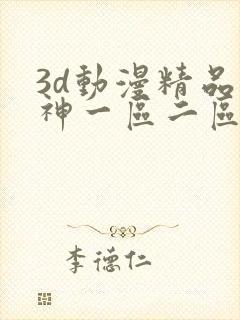 3d動漫精品
神一區二區
李德仁